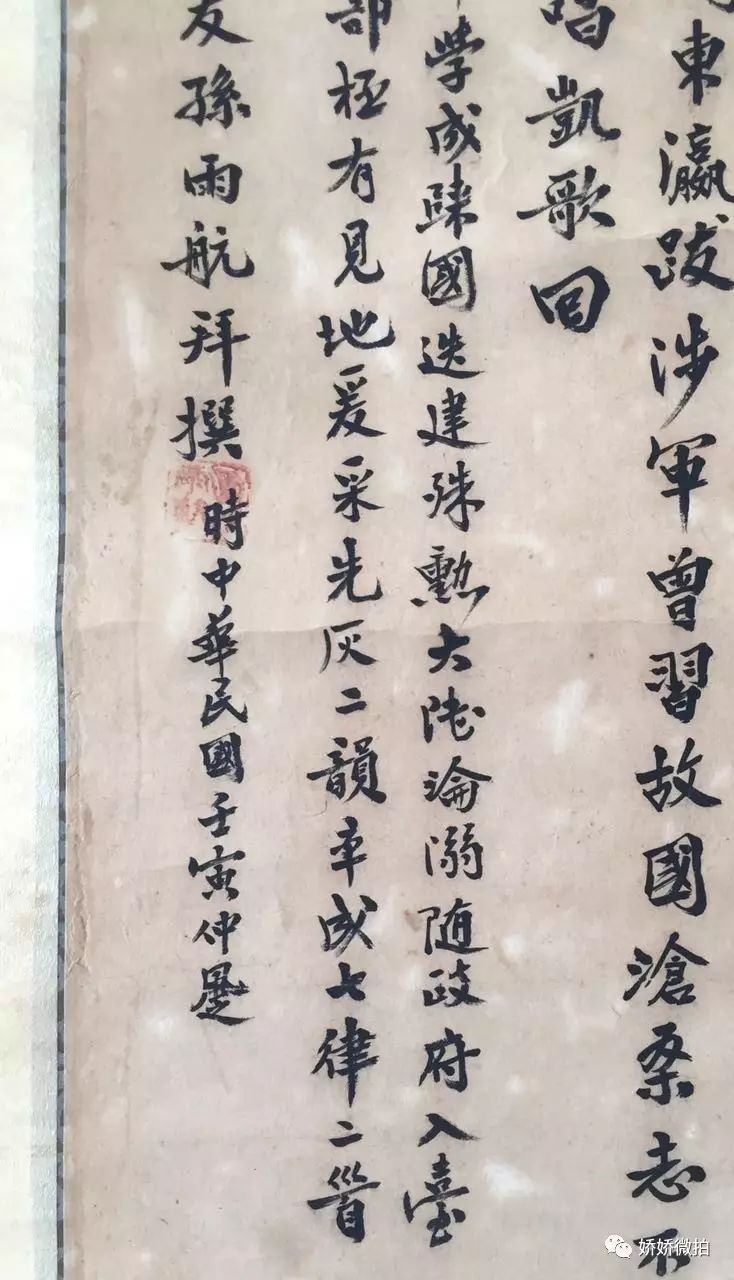 東瀛跋涉軍曾習故國滄桑志不
唱凱歌回
學成歸國迭建殊勲大陸淪溺随政府入臺
部極有見地爰采先灰二韻率成七律二首
友孫雨航拜撰
時中華民國壬寅仲夏
娇娇微拍